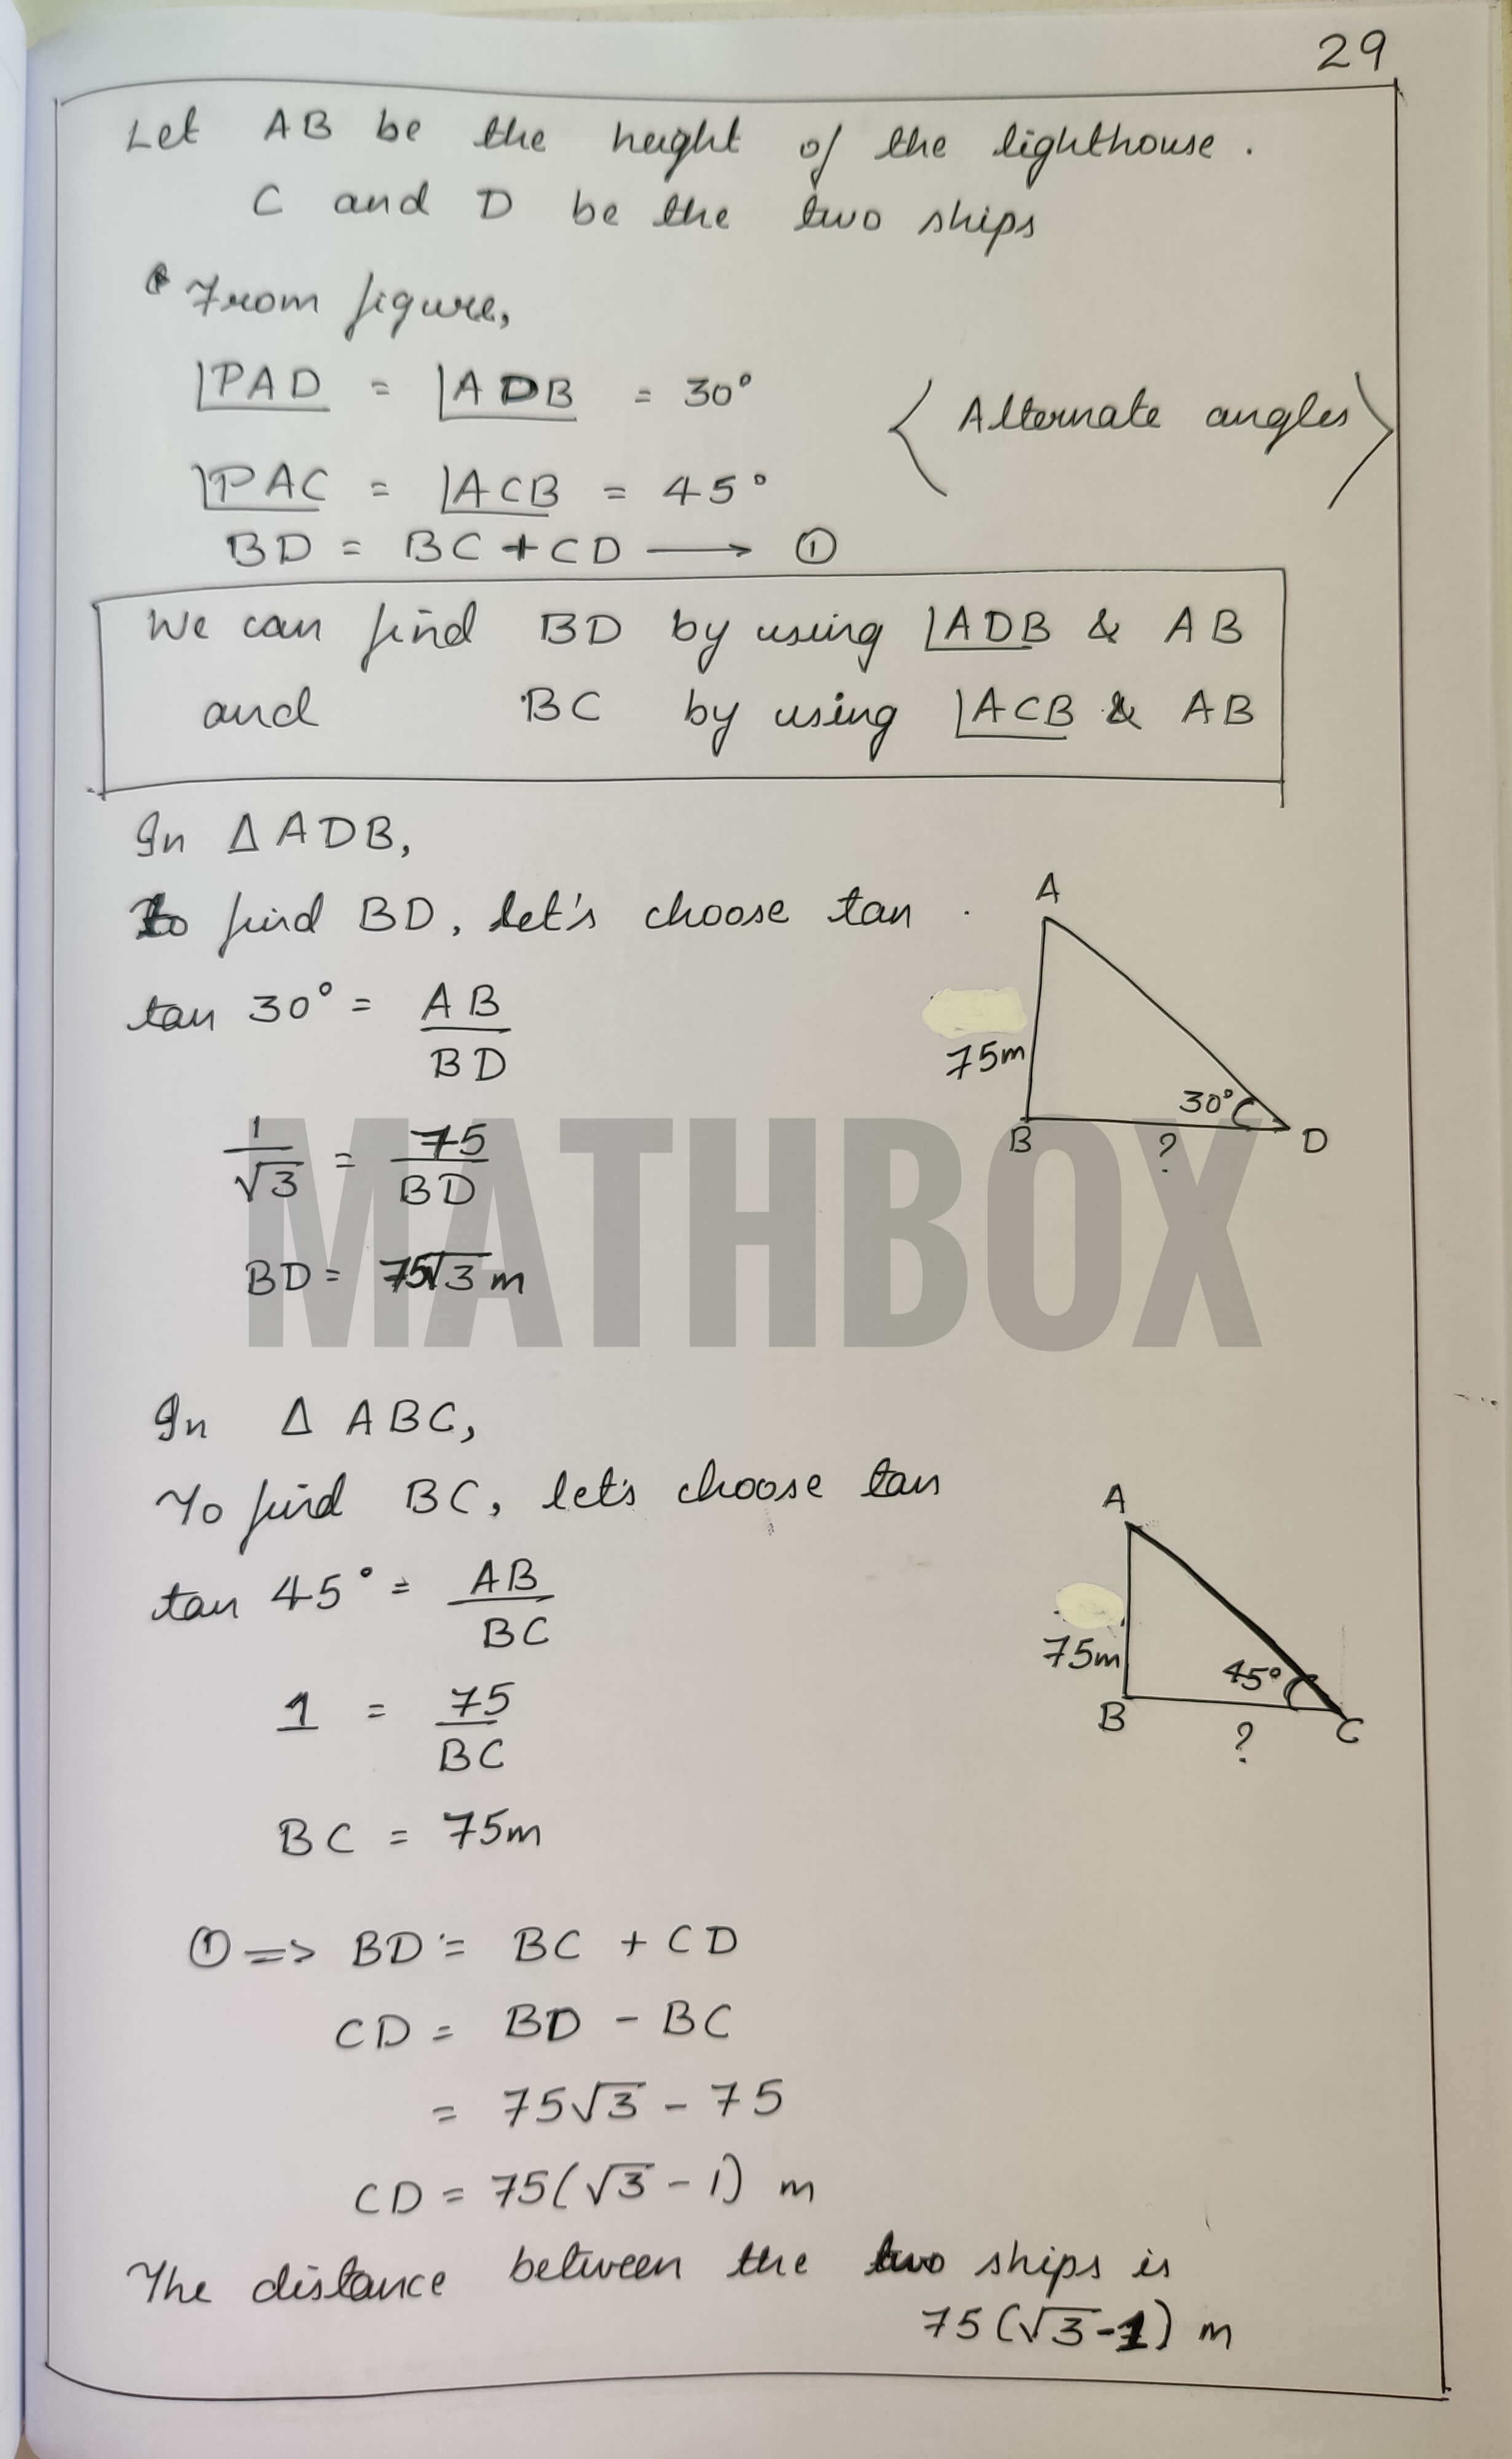 29
Let AB be the height of the lighthouse.
C and D be the two ships
From figure,
∠PAD = ∠ADB = 30°
⟨ Alternate angles ⟩
∠PAC = ∠ACB = 45°
BD = BC + CD ⟶ ①
We can find BD by using ∠ADB & AB
and BC by using ∠ACB & AB
In Δ ADB,
To find BD, let's choose tan .
tan 30° = AB/BD
1/√3 = 75/BD
BD = 75√3 m
A
75m
30°
B ? D
MATHBOX
In Δ ABC,
To find BC, let's choose tan
tan 45° = AB/BC
1 = 75/BC
BC = 75m
A
75m
45°
B ? C
① => BD = BC + CD
CD = BD - BC
= 75√3 - 75
CD = 75(√3 - 1) m
The distance between the two ships is
75(√3-1) m